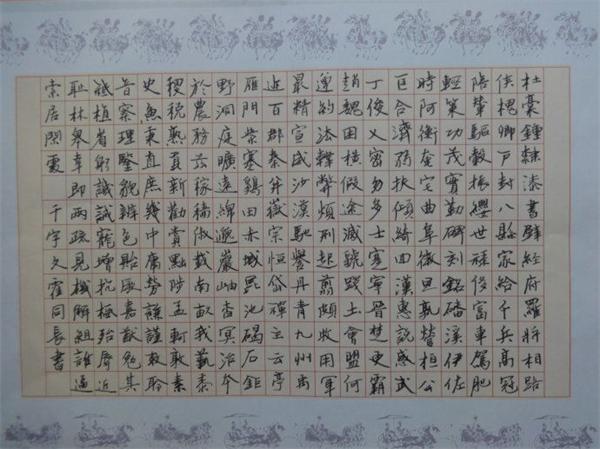 杜稾鍾隸漆書壁經府羅將相路
俠槐卿戶封八縣家給千兵高冠
陪輦驅轂振纓世祿侈富車駕肥
輕策功茂實勒碑刻銘磻溪伊佐
時阿衡奄宅曲阜微旦孰營桓公
匡合濟弱扶傾綺回漢惠說感武
丁俊乂密勿多士寔寧晉楚更霸
趙魏困橫假途滅虢踐土會盟何
遵約法韓弊煩刑起翦頗牧用軍
最精宣威沙漠馳譽丹青九州禹
迹百郡秦并嶽宗恒岱禪主云亭
雁門紫塞鷄田赤城昆池碣石鉅
野洞庭曠遠綿邈巖岫杳冥治本
於農務茲稼穡俶載南畝我藝黍
稷稅熟貢新勸賞黜陟孟軻敦素
史魚秉直庶幾中庸勞謙謹敕聆
音察理鑒貌辨色貽厥嘉猷勉其
祗植省躬譏誡寵增抗極殆辱近
恥林皋幸即兩疏見機解組誰逼
索居閑處 千字文 霍同長書